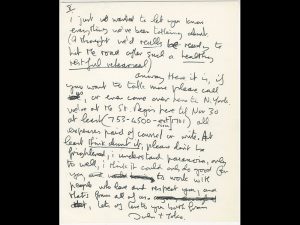 3.
i just wanted to let you know
everything we've been talking about
(i thought we'd really be ready to
hit the road after such a healthy
restful rehearsal.)
anyway there it is, if
you want to talk more please call
us, or even come over here to N. York.
we're at the St. Regis here til Nov 30
at least (753-4500- ext/701) all
expenses paid of course! or write. At
least think about it, please don't be
frightened, i understand paranoia, only
too well, i think it could only do good for
you, and to work with
people who love and respect you, and
that's from all of us
, lots of love to you both from
John + Yoko